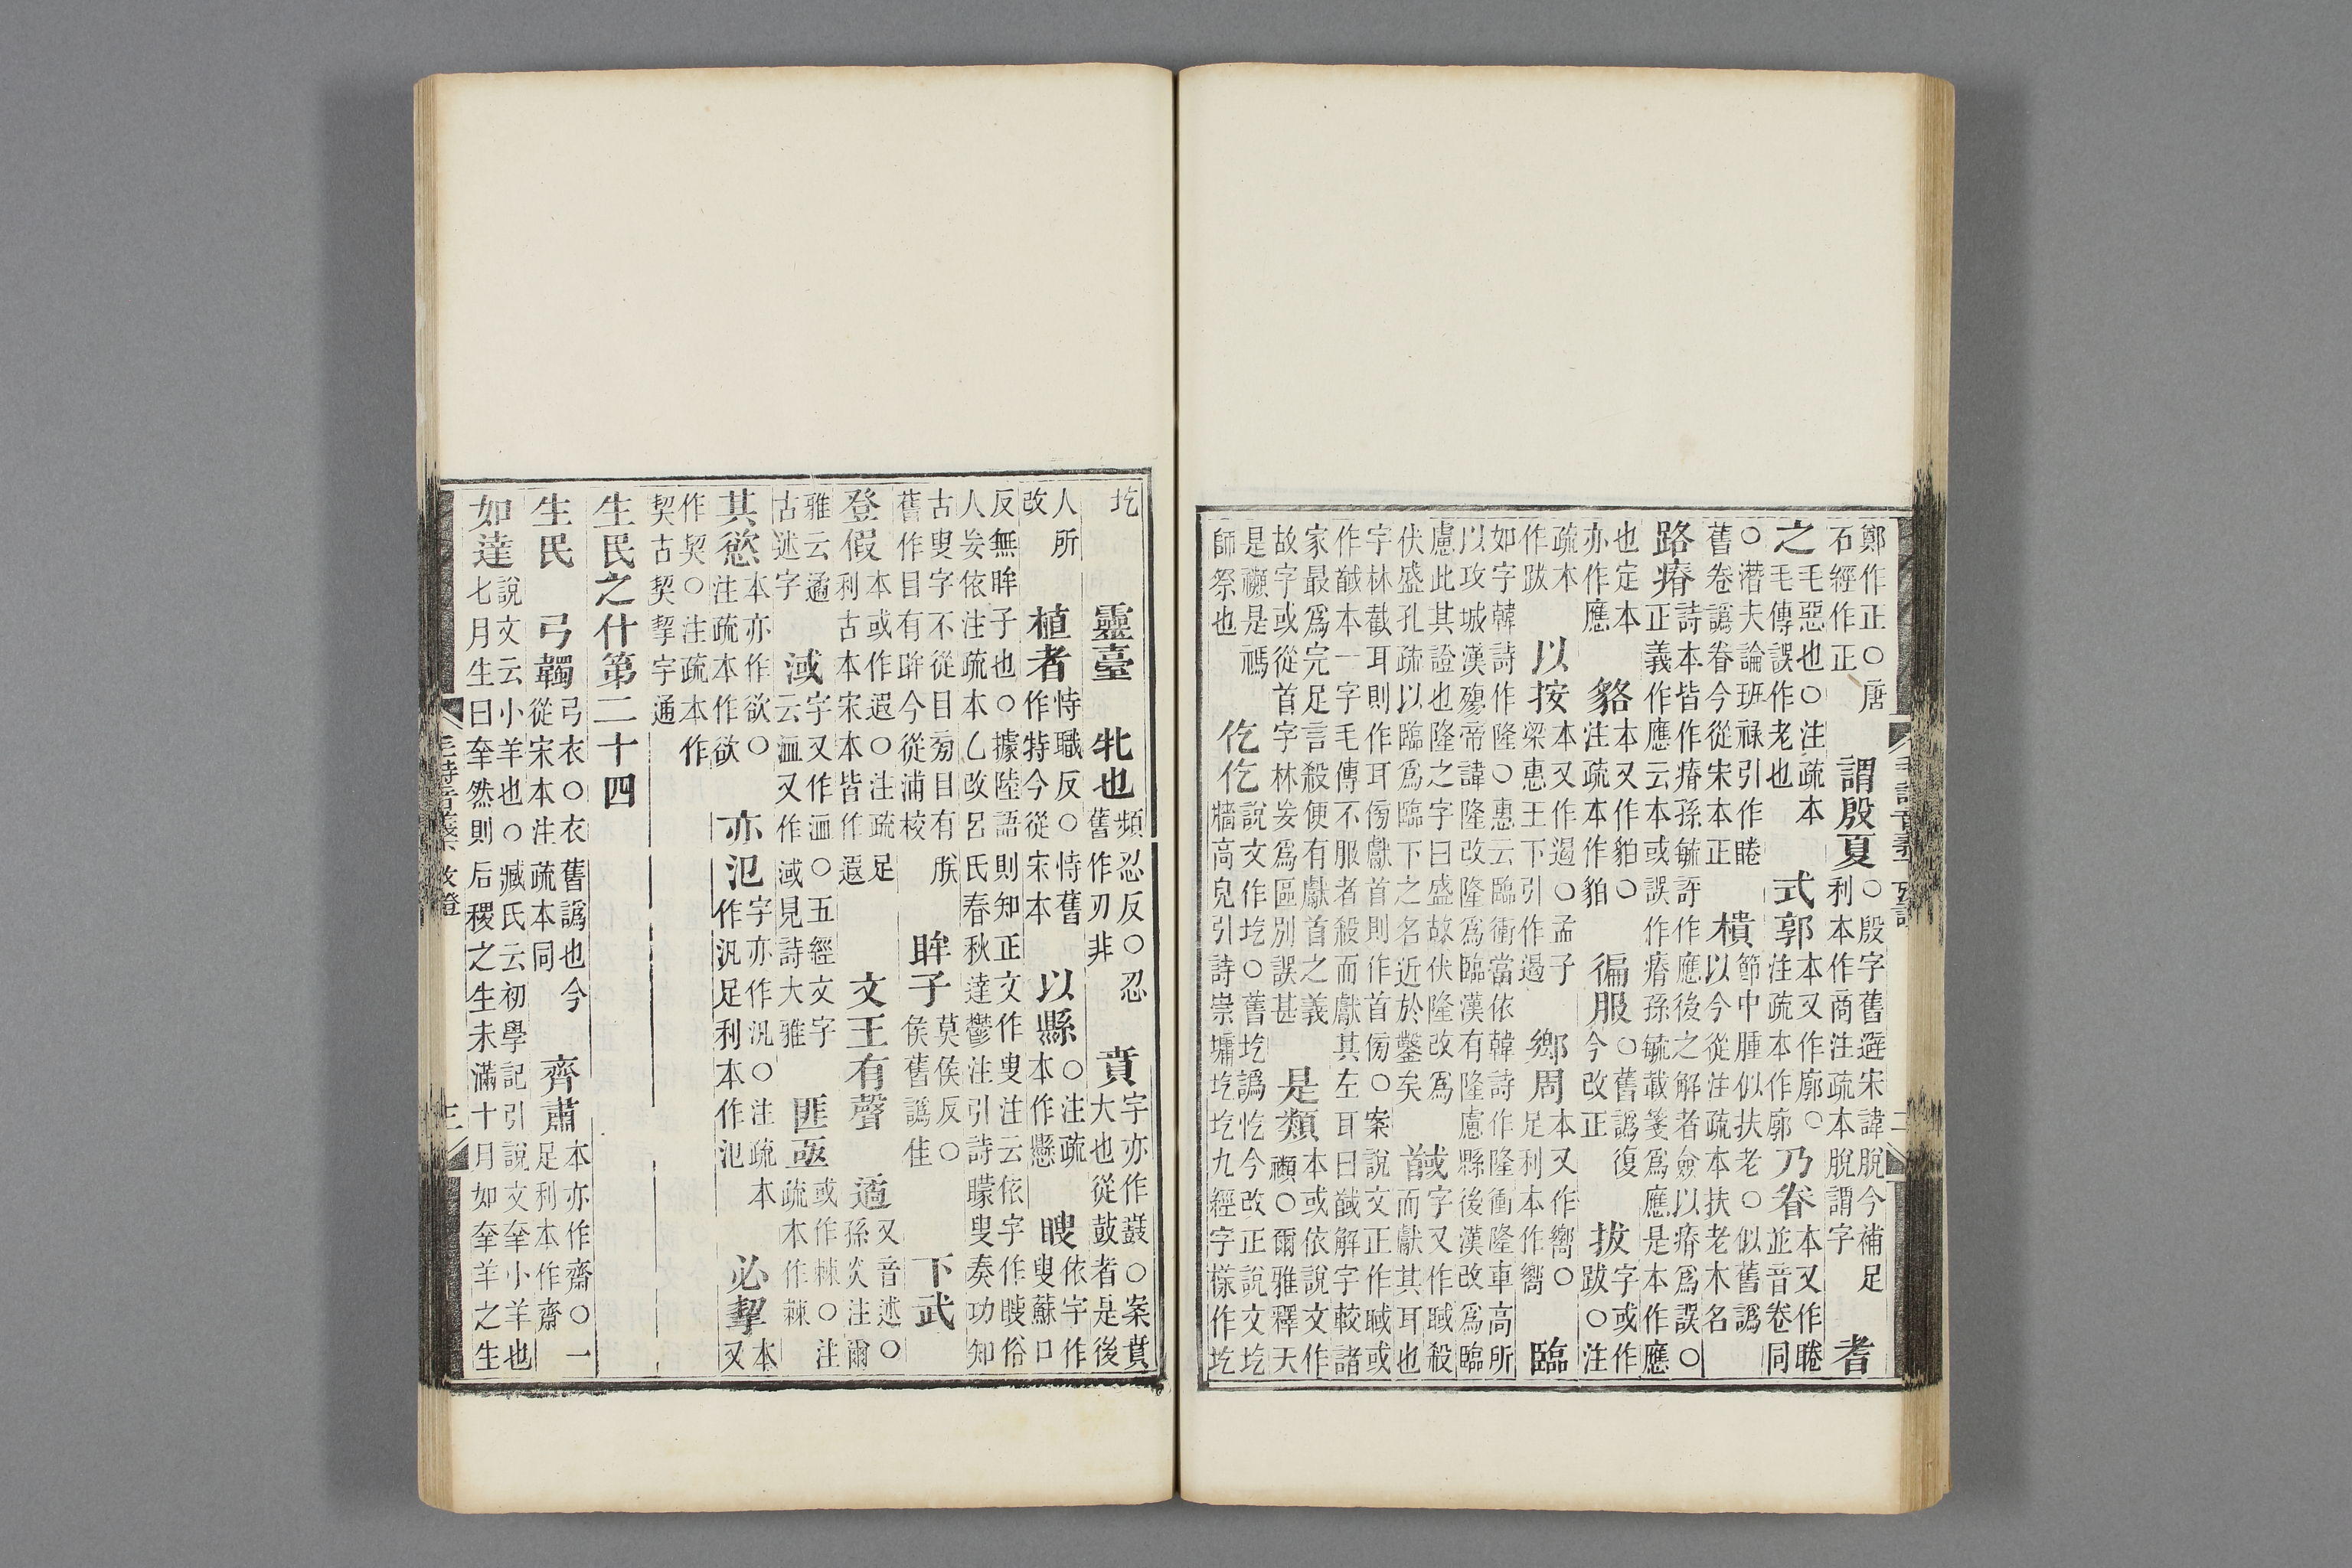 鄭作正○唐
石經作正
謂殷夏
○殷字舊避宋諱脫今補足
利本作商注疏本脫謂字
耆
之毛惡也○注疏本
毛傳誤作老也
式郭
本又作廓○
注疏本作廓
乃眷
本又作睠
並音卷同
○潛夫論班祿引作睠
舊卷譌眷今從宋本正
樻
節中腫似扶老○似舊譌
以今從注疏本扶老木名
路瘠
詩本皆作瘠孫毓訝作應後之解者僉以瘠爲誤○
正義作應云本或誤作瘠孫毓載箋爲應是本作應
也定本
亦作應
貉
本又作貊○
注疏本作貊
徧服
○舊譌復
今改正
拔
字或作
跋○注
疏本
作跋
以按
本又作遏○孟子
梁惠王下引作遏
鄉周
本又作嚮○
足利本作嚮
臨
如字韓詩作隆○惠云臨衝當依韓詩作隆衝隆車高所
以攻城漢殤帝諱隆改隆爲臨漢有隆慮縣後漢改爲臨
慮此其證也隆之字曰盛故伏隆改爲
伏盛孔疏以臨爲臨下之名近於鑿矣
馘
字又作聝殺
而獻其耳也
字林截耳則作耳傍獻首則作首傍○案說文正作聝或
作馘本一字毛傳不服者殺而獻其左耳曰馘解字較諸
家最爲完足言殺便有獻首之義
故字或從首字林妄爲區別誤甚
是類
本或依說文作
禷○爾雅釋天
是禷是禡
師祭也
仡仡
說文作圪○舊圪譌忔今改正說文圪
牆高皃引詩崇墉圪圪九經字樣作圪
圪
靈臺
牝也
頻忍反○忍
舊作刃非
賁
字亦作鼖○案賁
大也從鼓者是後
人所
改
植者
恃職反○恃舊
作特今從宋本
以縣
○注疏
本作懸
瞍
依字作
叟蘇口
反無眸子也○據陸語則知正文作叟注云依字作瞍俗
人妄依注疏本乙改呂氏春秋達鬱注引詩矇叟奏功知
古叟字不從目旁目有朕
舊作目有眹今從浦校
眸子
莫侯反○
侯舊譌佳
下武
登假
本或作遐○注疏足
利古本宋本皆作遐
文王有聲
遹
又音述○
孫炎注爾
雅云遹
古述字
淢
字又作洫○五經文字
云洫又作淢見詩大雅
匪亟
或作棘○注
疏本作棘
其慾
本亦作欲○
注疏本作欲
亦氾
字亦作汎○注疏本
作汎足利本作氾
必挈
本又
作契○注疏本作
契古契挈字通
生民之什第二十四
生民
弓韣
弓衣○衣舊譌也今
從宋本注疏本同
齊肅
本亦作齋○一
足利本作齋
如達
說文云小羊也○臧氏云初學記引說文羍小羊也
七月生曰羍然則后稷之生未滿十月如羍羊之生